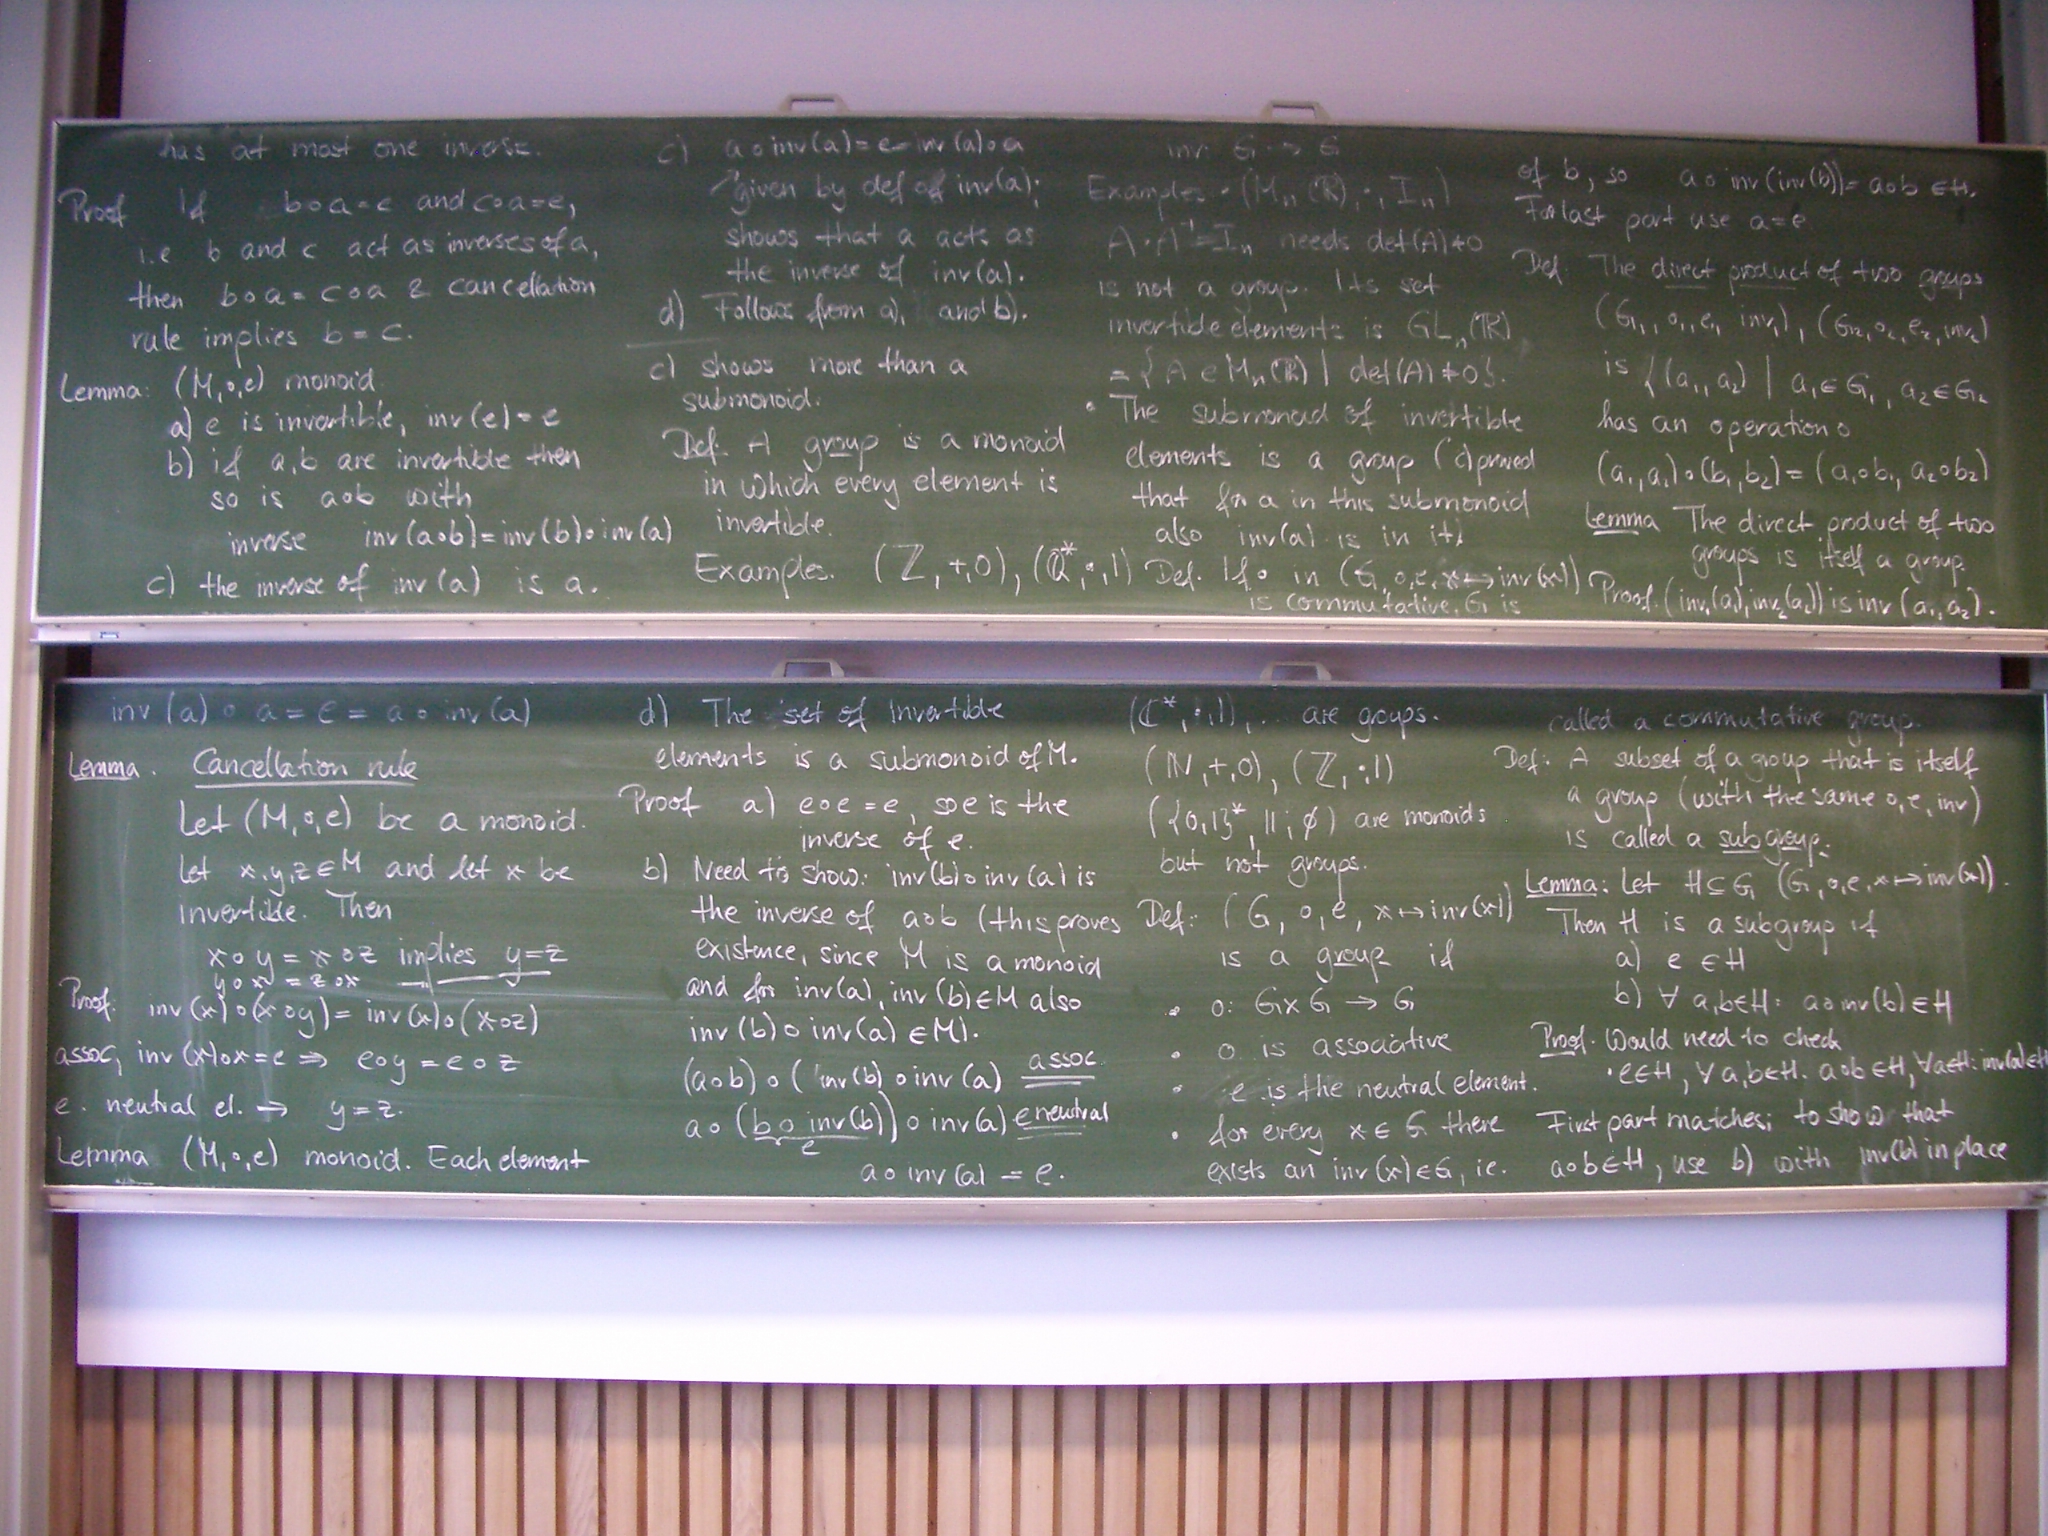 has at most one inverse.
Proof If b∘a=e and c∘a=e,
i.e b and c act as inverses of a,
then b∘a = c∘a & cancellation
rule implies b = c.
Lemma: (M,∘,e) monoid
a) e is invertible, inv(e) = e
b) if a,b are invertible then
so is a∘b with
inverse inv(a∘b) = inv(b)∘inv(a)
c) the inverse of inv(a) is a.
c) a∘inv(a) = e = inv(a)∘a
given by def of inv(a);
shows that a acts as
the inverse of inv(a).
d) Follows from a), and b).
c) shows more than a
submonoid.
Def: A group is a monoid
in which every element is
invertible.
Examples. (ℤ,+,0), (ℚ*,·,1)
inv: G → G
Examples • (Mₙ(ℝ),·,Iₙ)
A·A⁻¹=Iₙ needs det(A)≠0
is not a group. Its set
invertible elements is GLₙ(ℝ)
= {A∈Mₙ(ℝ) | det(A)≠0}.
• The submonoid of invertible
elements is a group (c) proved
that for a in this submonoid
also inv(a) is in it)
Def. If ∘ in (G,∘,e,x↦inv(x))
is commutative, G is
of b, so a∘inv(inv(b)) = a∘b ∈H.
For last part use a=e.
Def: The direct product of two groups
(G₁,∘₁,e₁,inv₁), (G₂,∘₂,e₂,inv₂)
is {(a₁,a₂) | a₁∈G₁, a₂∈G₂
has an operation ∘
(a₁,a₂)∘(b₁,b₂) = (a₁∘b₁, a₂∘b₂)
Lemma The direct product of two
groups is itself a group.
Proof. (inv₁(a₁),inv₂(a₂)) is inv(a₁,a₂).
inv(a)∘a = e = a∘inv(a)
Lemma. Cancellation rule
Let (M,∘,e) be a monoid.
Let x,y,z∈M and let x be
invertible. Then
x∘y = x∘z implies y=z
y∘x = z∘x —"—
Proof: inv(x)∘(x∘y) = inv(x)∘(x∘z)
assoc, inv(x)∘x=e ⇒ e∘y = e∘z
e. neutral el. → y=z.
Lemma (M,∘,e) monoid. Each element
d) The set of invertible
elements is a submonoid of M.
Proof a) e∘e = e, so e is the
inverse of e.
b) Need to show: inv(b)∘inv(a) is
the inverse of a∘b (this proves
existence, since M is a monoid
and for inv(a), inv(b)∈M also
inv(b)∘inv(a) ∈M).
(a∘b)∘(inv(b)∘inv(a) assoc.
a∘(b∘inv(b))∘inv(a) e neutral
e
a∘inv(a) = e.
(ℂ*,·,1), ... are groups.
(ℕ,+,0), (ℤ,·,1)
({0,1}*,||,∅) are monoids
but not groups.
Def: (G,∘,e, x↦inv(x))
is a group if
• ∘: G×G → G
• ∘ is associative
• e is the neutral element.
• for every x∈G there
exists an inv(x)∈G, ie.
called a commutative group.
Def: A subset of a group that is itself
a group (with the same ∘,e,inv)
is called a subgroup.
Lemma: Let H⊆G (G,∘,e,x↦inv(x)).
Then H is a subgroup if
a) e ∈H
b) ∀ a,b∈H: a∘inv(b) ∈H
Proof. Would need to check
• e∈H, ∀a,b∈H. a∘b∈H, ∀a∈H: inv(a)∈H
First part matches; to show that
a∘b∈H, use b) with inv(b) in place